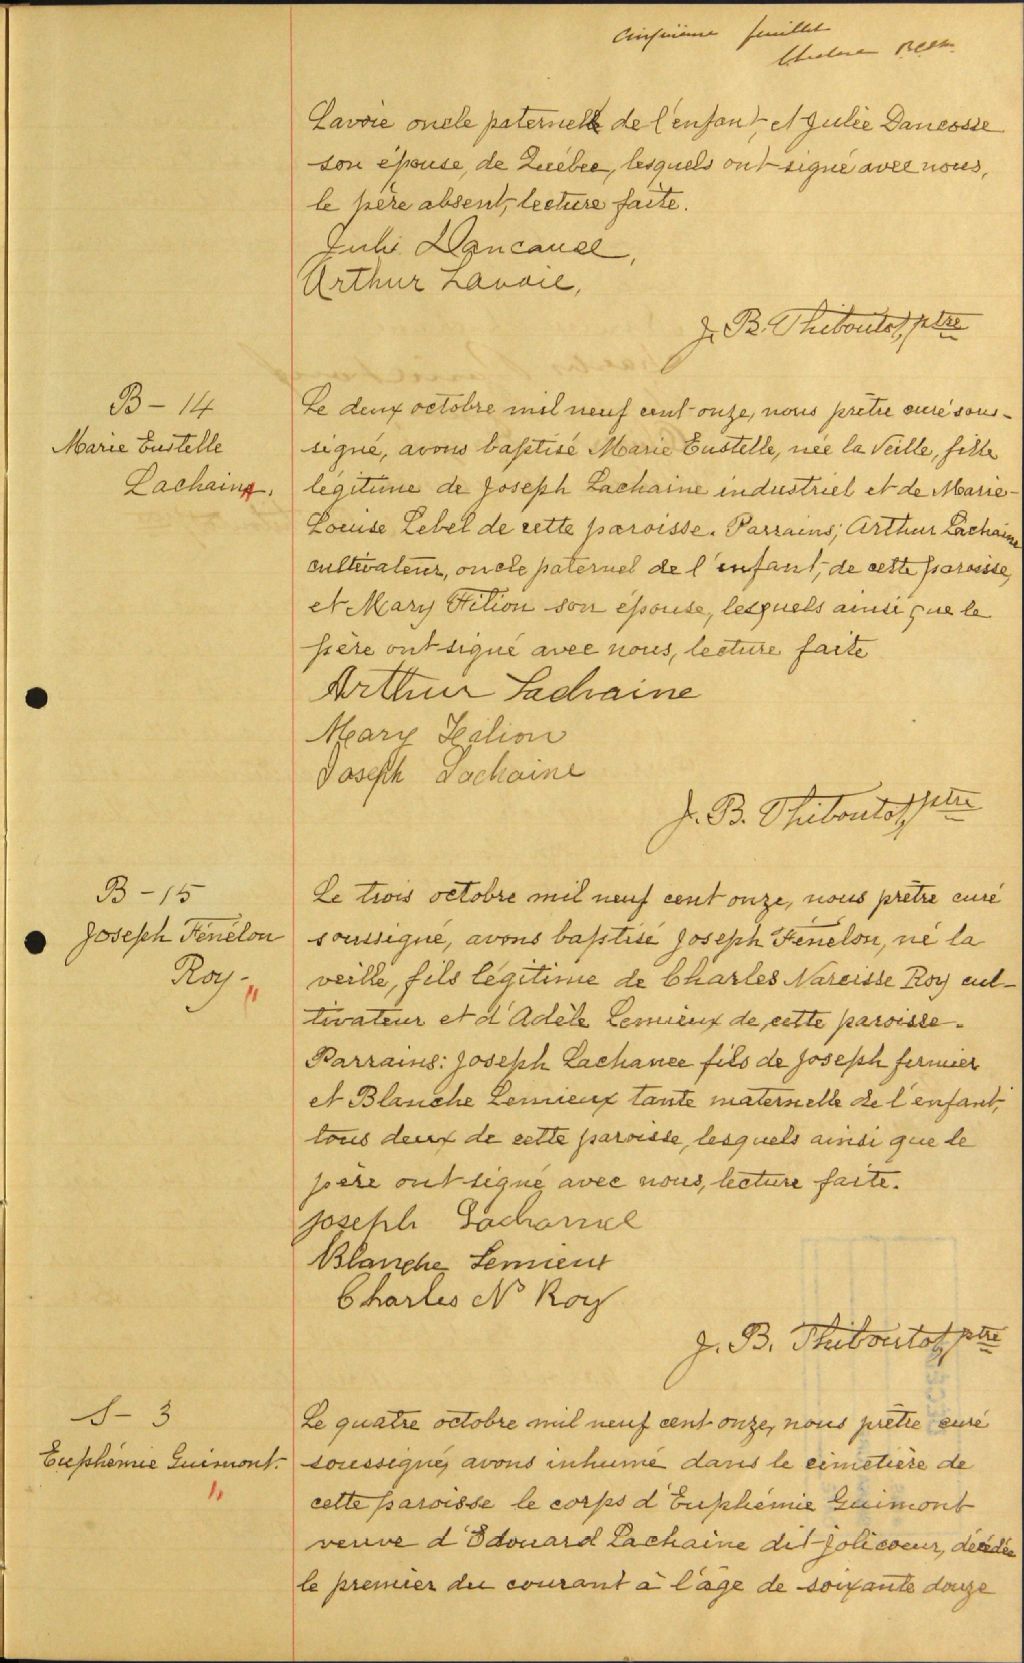 Cinquième feuillet
Lavoie oncle paternel de l'enfant, et Julie Dancosse
son épouse, de Québec, lesquels ont signé avec nous,
le père absent, lecture faite.
Julie Dancause,
Arthur Lavoie,
J. B. Thiboutot, ptre
B - 14
Marie Eustelle
Lachaine.
Le deux octobre mil neuf cent onze, nous prêtre curé sous-
signé, avons baptisé Marie Eustelle, née la veille, fille
légitime de Joseph Lachaine industriel et de Marie-
Louise Lebel de cette paroisse. Parrains; Arthur Lachaine
cultivateur, oncle paternel de l'enfant, de cette paroisse,
et Mary Filion son épouse, lesquels ainsi que le
père ont signé avec nous, lecture faite
Arthur Lachaine
Mary Filion
Joseph Lachaine
J. B. Thiboutot, ptre
B - 15
Joseph Fénélon
Roy -
Le trois octobre mil neuf cent onze, nous prêtre curé
soussigné, avons baptisé Joseph Fénélon, né la
veille, fils légitime de Charles Narcisse Roy cul-
tivateur et d'Adèle Lemieux de cette paroisse.
Parrains: Joseph Lachance fils de Joseph fermier
et Blanche Lemieux tante maternelle de l'enfant,
tous deux de cette paroisse, lesquels ainsi que le
père ont signé avec nous, lecture faite.
Joseph Lachance
Blanche Lemieux
Charles N. Roy
J. B. Thiboutot, ptre
S - 3
Euphémie Guimont.
Le quatre octobre mil neuf cent onze, nous prêtre curé
soussigné, avons inhumé dans le cimetière de
cette paroisse le corps d'Euphémie Guimont
veuve d'Edouard Lachaine dit Jolicoeur, décédée
le premier du courant à l'âge de soixante douze